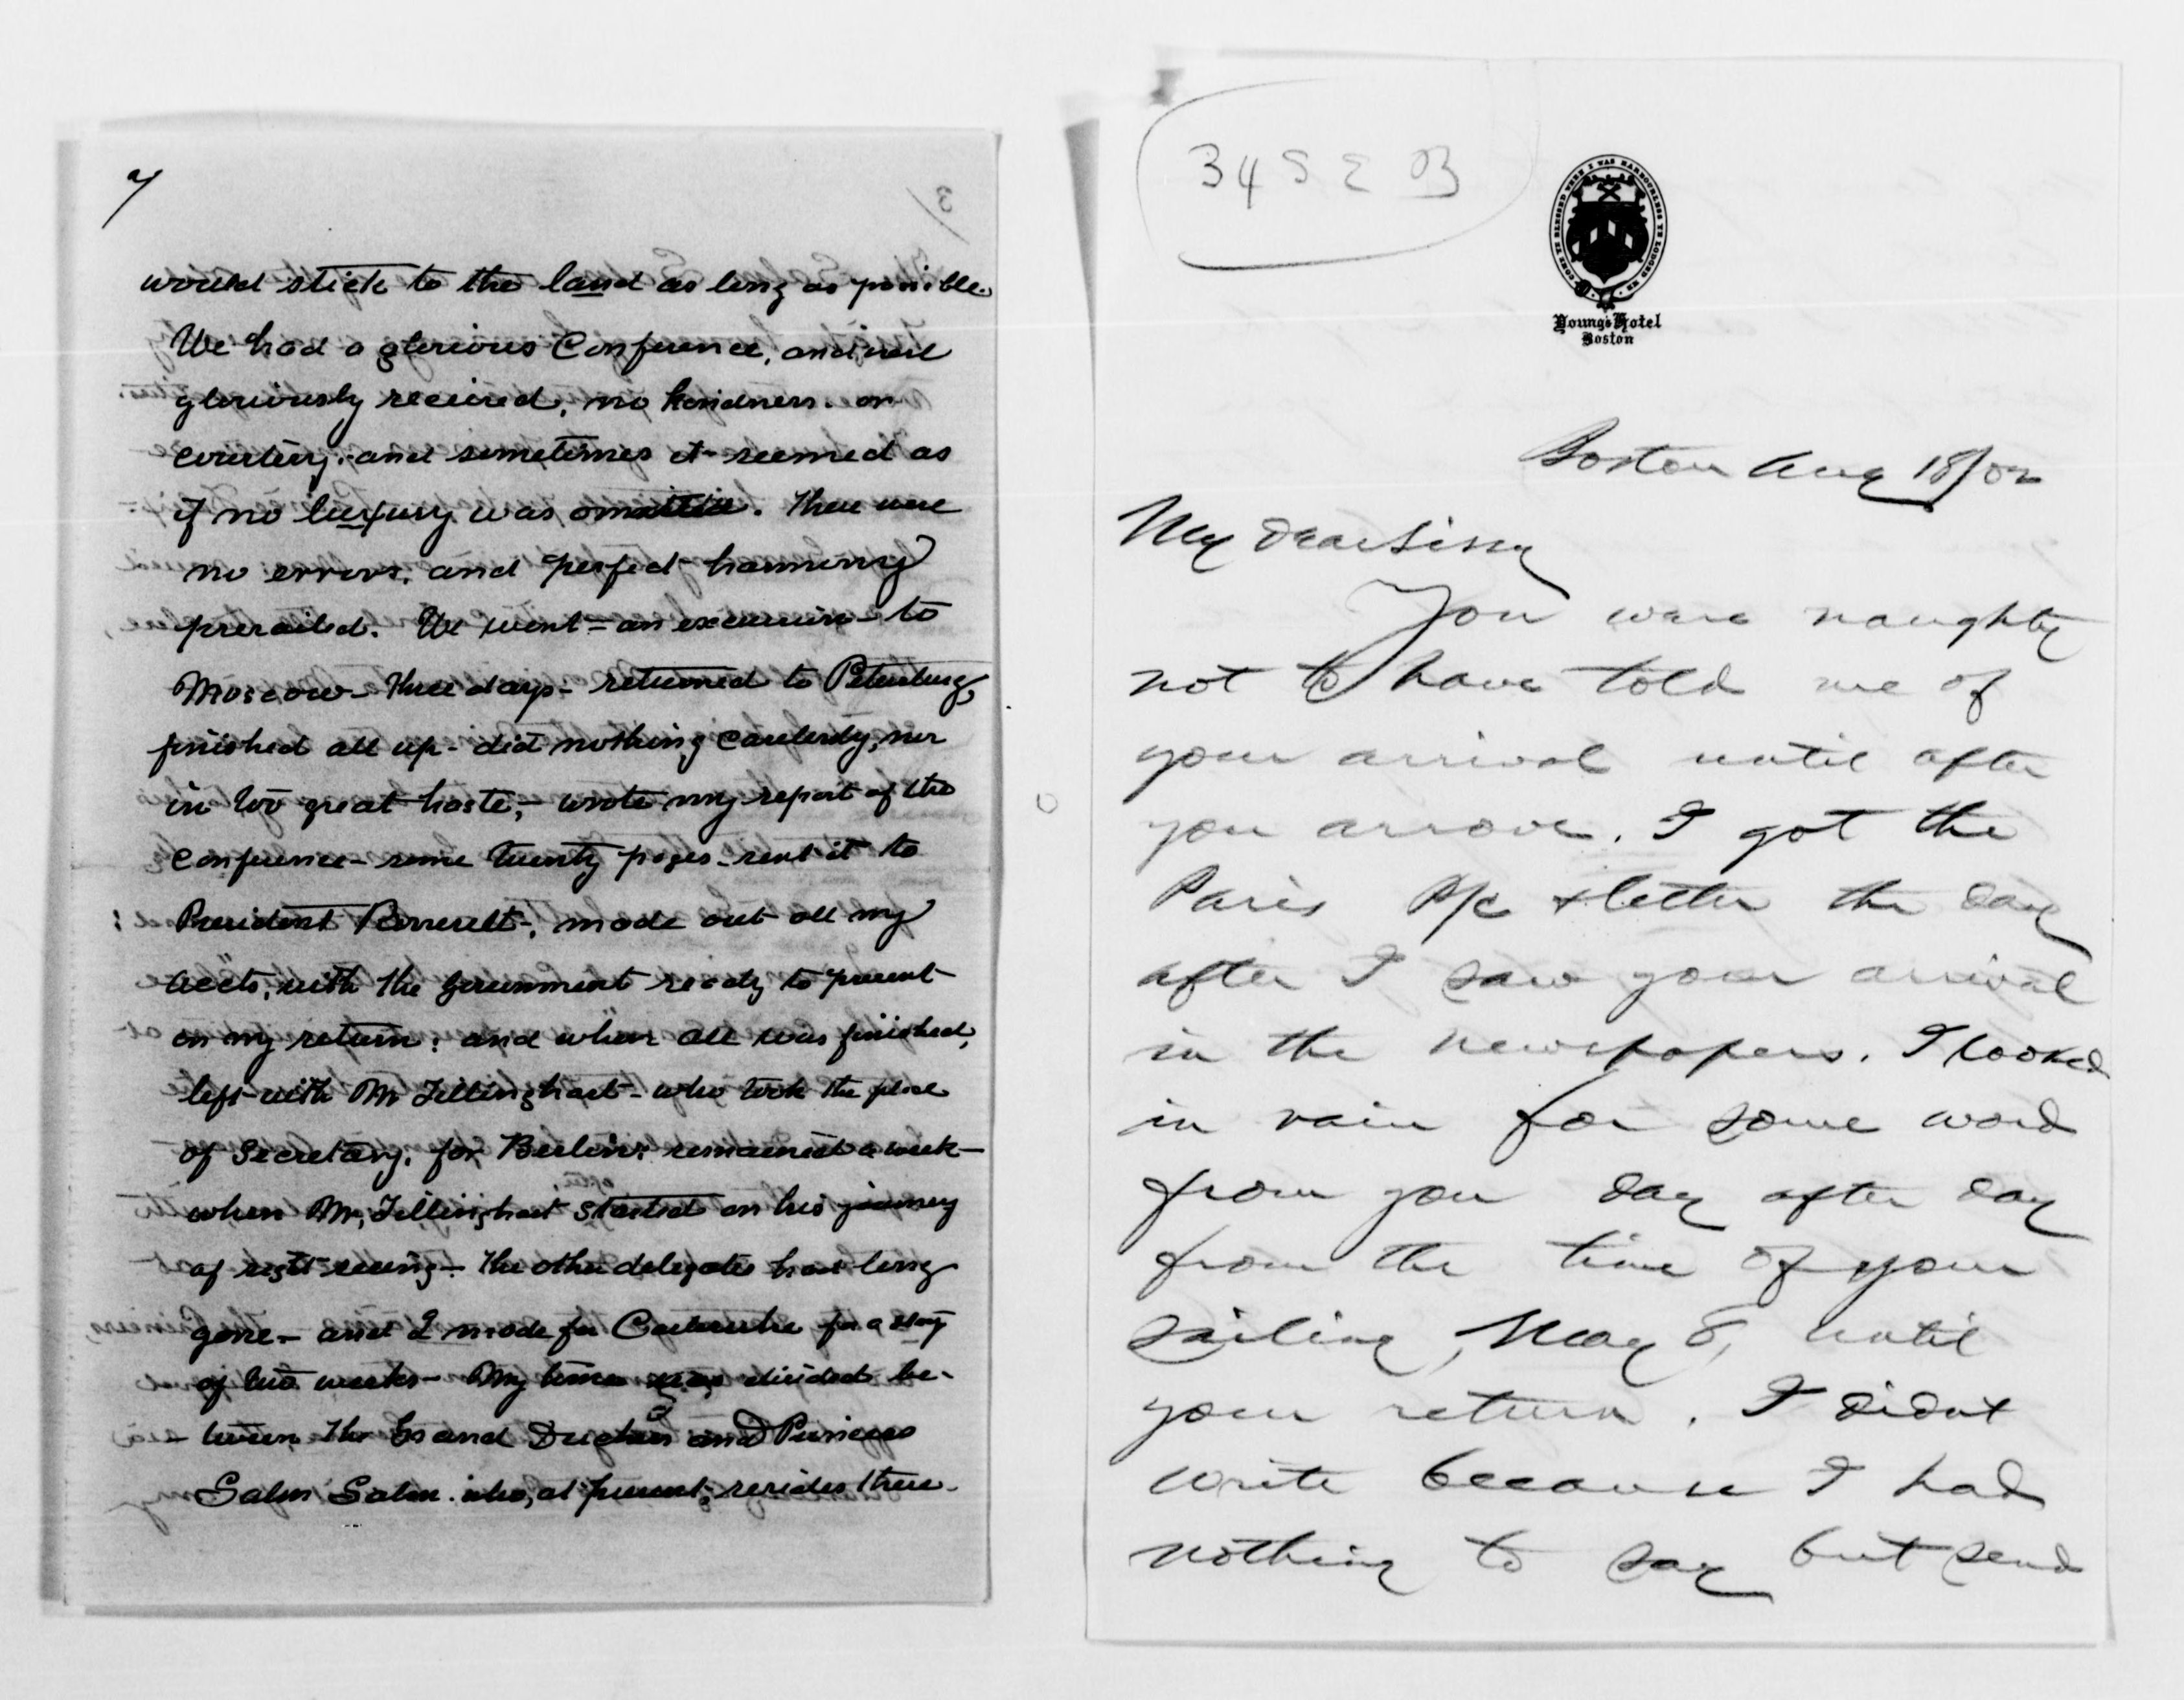 would stick to the land as long as possible.
We had a glorious Conference, and were
gloriously received, no kindness. or
courtesy. and sometimes it seemed as
if no luxury was omitted. There were
no errors. and perfect harmony
prevailed. We went - an excursion - to
Moscow - three days - returned to Petersburg,
finished all up - did nothing carelessly, nor
in too great haste, - wrote my report of the
Conference - some twenty pages - sent it to
President Roosevelt -, made out all my
accts, with the government ready to present
on my return; and when all was finished,
left with Mr Tillinghast - who took the place
of Secretary. for Berlin: remained a week -
when Mr, Tillinghast started on his journey
of sight seeing - the other delegates had long
gone - and I made for Carlsruhe for a stay
of two weeks - My time was divided be-
- tween the Grand Duchess and Princess
Salm Salm. who, at present, resides there -
3452 03
COME YE BLESSED WHEN I WAS HARBOURLESS YE LODGED ME
Young's Hotel
Boston
Boston Aug 18/02
My dear Sissy
You were naughty
not to have told me of
your arrival until after
you arrove. I got the
Paris P/c & letter the day
after I saw your arrival
in the newspapers. I looked
in vain for some word
from you day after day
from the time of your
sailing, May 8, until
your return. I didnt
write because I had
nothing to say but send